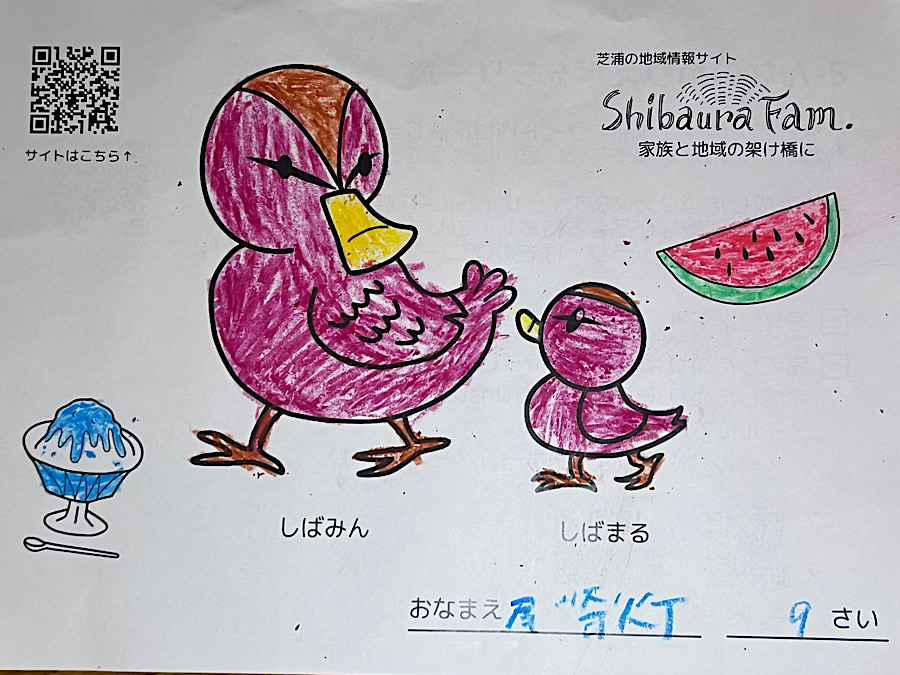 芝浦の地域情報サイト
Shibaura Fam.
家族と地域の架け橋に
サイトはこちら↑
しばみん
しばまる
おなまえ 尾㟢灯 9 さい